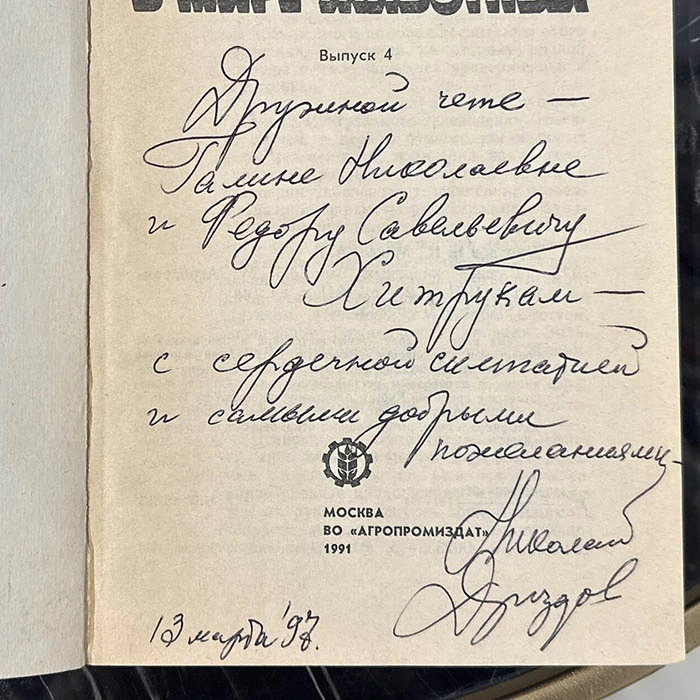 В МИРЕ ЖИВОТНЫХ
Выпуск 4
Дружной чете —
Галине Николаевне
и Федору Савельевичу
Хитрукам —
с сердечной симпатией
и самыми добрыми
пожеланиями
МОСКВА
ВО «АГРОПРОМИЗДАТ»
1991
Николай
Дроздов
13 марта '97г.